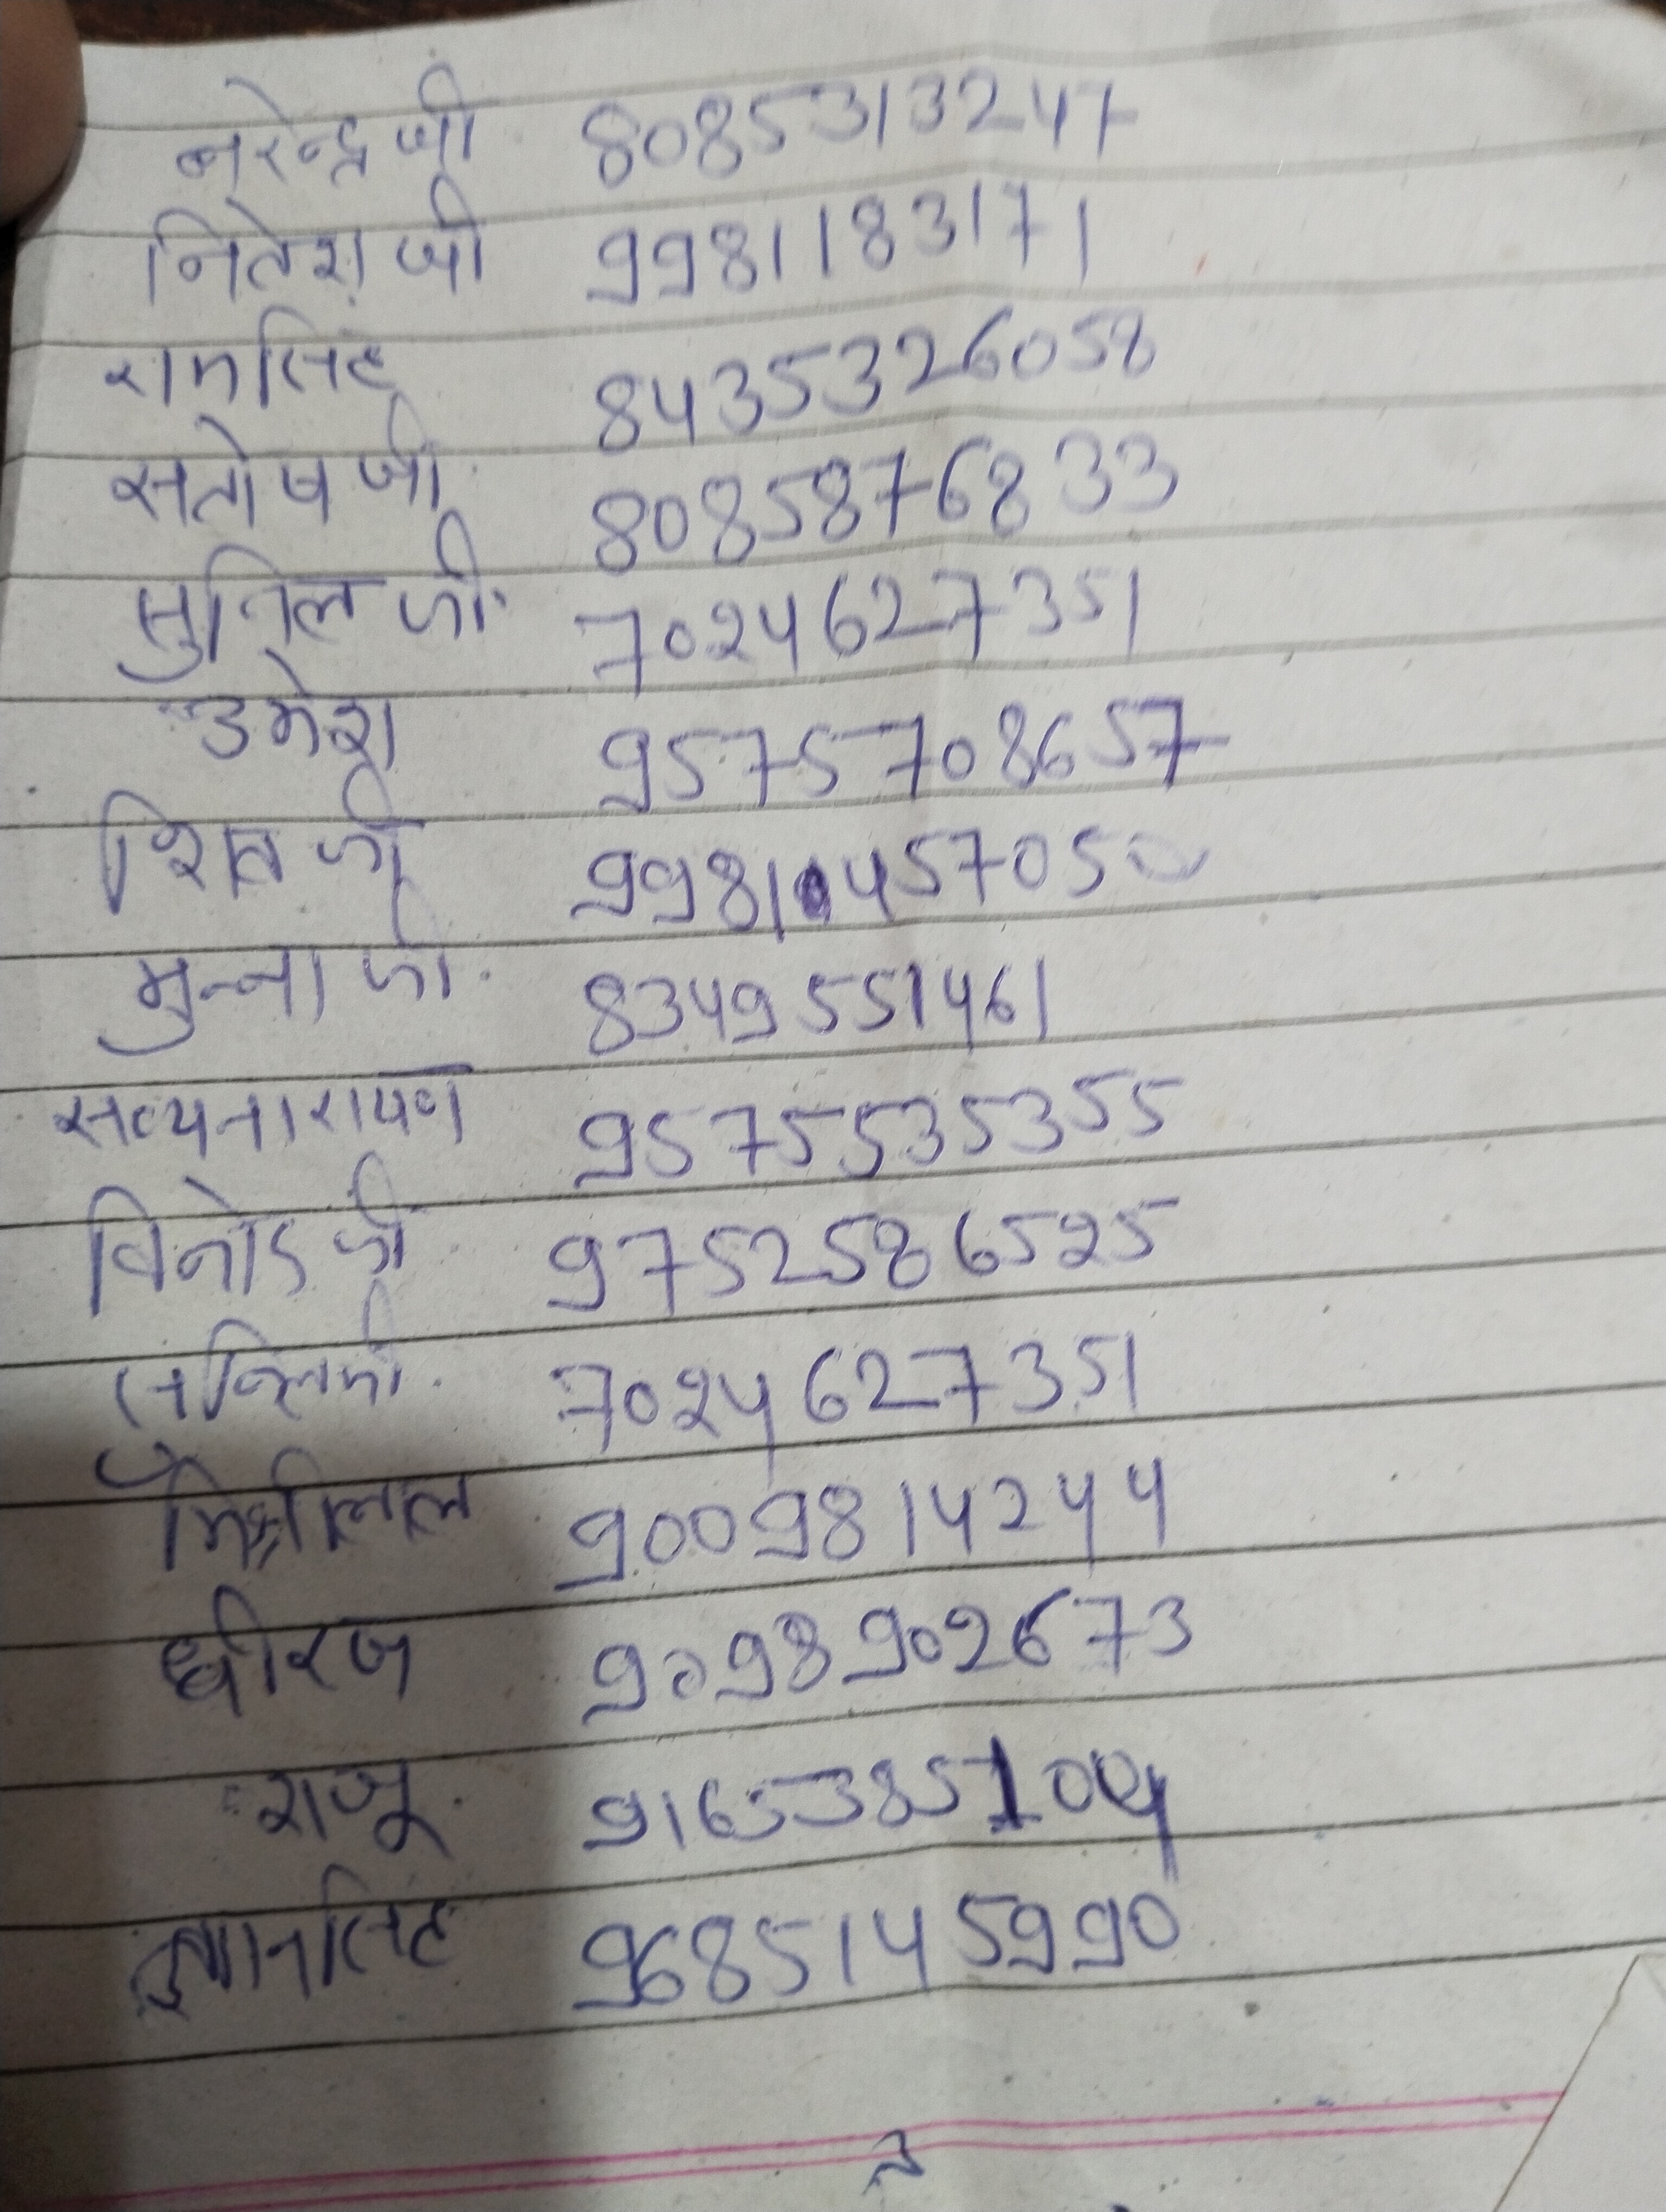 नरेन्द्र जी 8085313247
नितेश जी 9981183171
रामसिह 8435326058
सतोष जी 8085876833
सुनिल जी 7024627351
उमेश 9575708657
शिव जी 99810457050
मुन्ना जी 8349551461
सत्यनारायण 9575535355
विनोद जी 9752586525
सुनिल जी 7024627351
मिश्रीलाल 9009814244
धीरज 9098902673
राजू 9165385104
ज्ञानसिह 9685145990